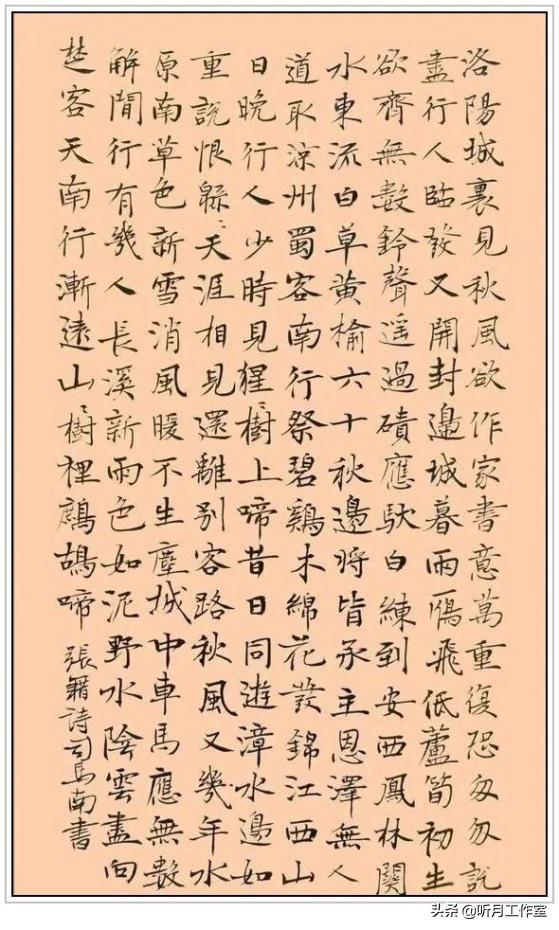 洛陽城裏見秋風欲作家書意萬重復恐匆匆說
盡行人臨發又開封邊城暮雨鴈飛低蘆筍初生
欲齊無數鈴聲遥過磧應馱白練到安西鳳林關
水東流白草黃榆六十秋邊將皆承主恩澤無人
道取涼州蜀客南行祭碧鷄木綿花發錦江西山
日晚行人少時見猩〻樹上啼昔日同遊漳水邊如
重說恨緜〻天涯相見還離別客路秋風又幾年水
原南草色新雪消風暖不生塵城中車馬應無數
解閒行有幾人長溪新雨色如泥野水陰雲盡向
楚客天南行漸遠山〻樹裡鷓鴣啼 張籍詩司馬南書
头条 @听月工作室